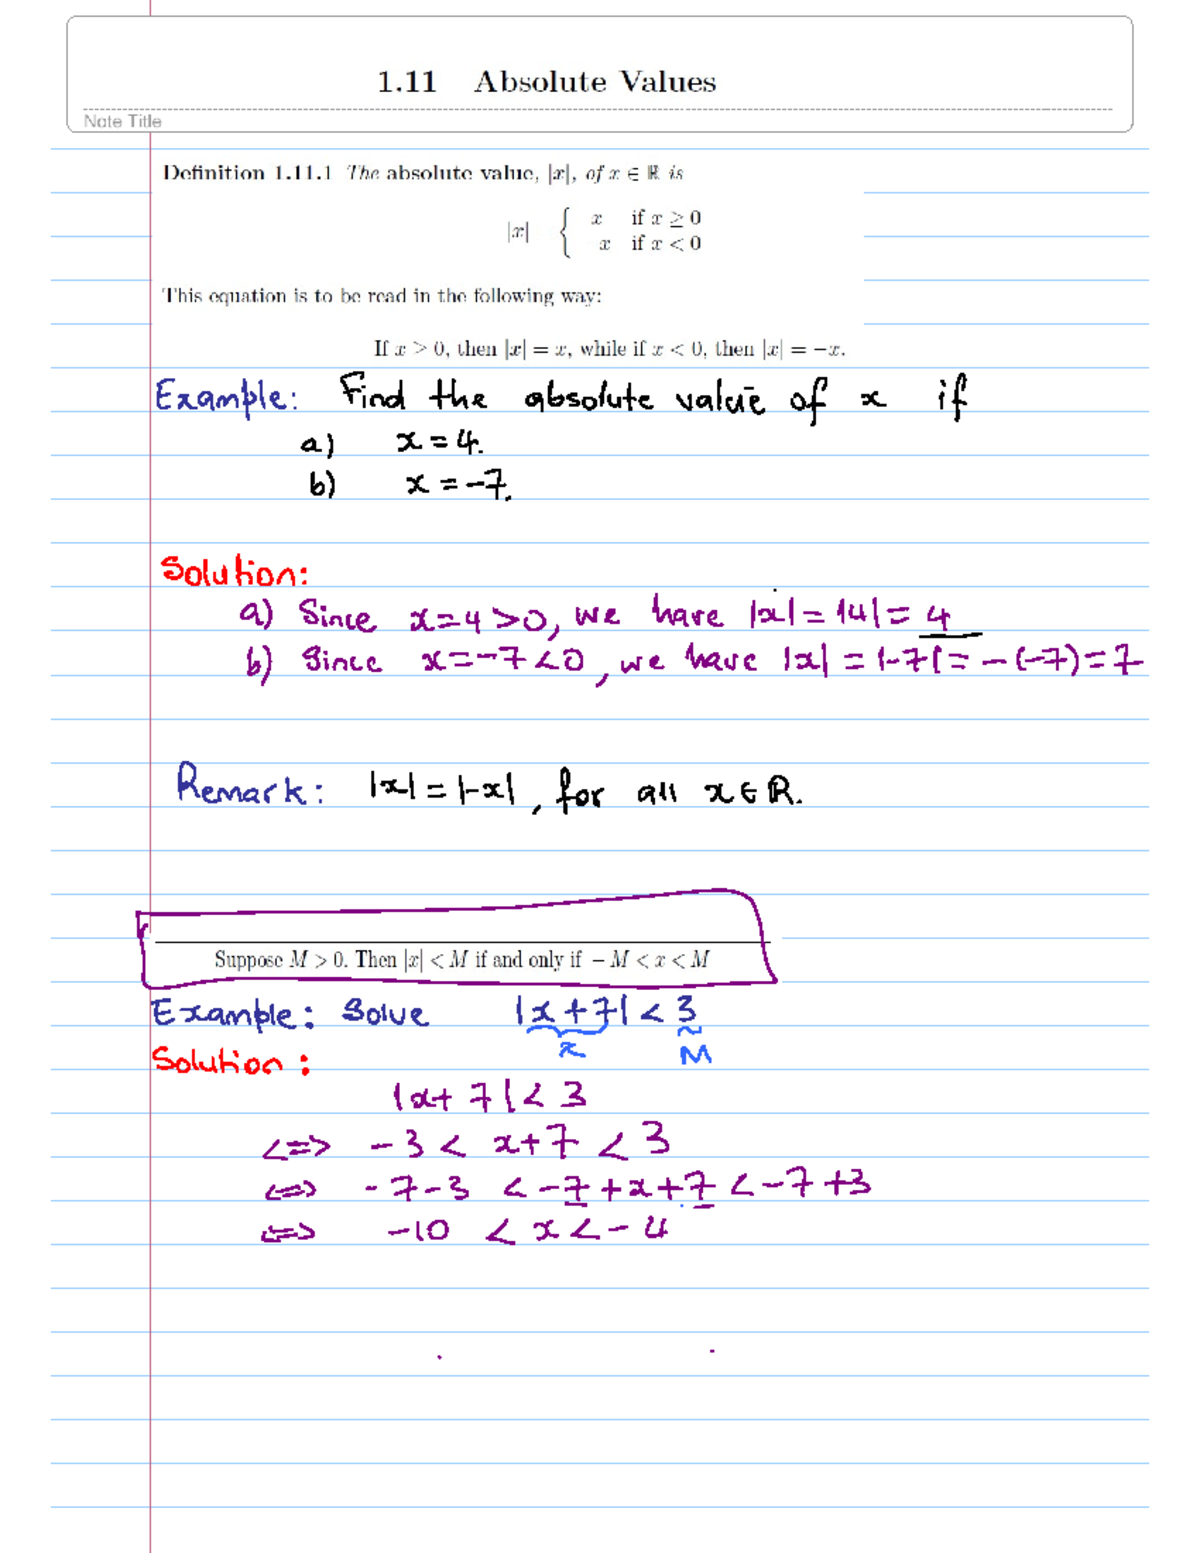 1.11 Absolute Values
Note Title
Definition 1.11.1 The absolute value, |x|, of x ∈ ℝ is
|x| { x if x ≥ 0
x if x < 0
This equation is to be read in the following way:
If x > 0, then |x| = x, while if x < 0, then |x| = −x.
Example: Find the absolute value of x if
a) x = 4.
b) x = -7.
Solution:
a) Since x=4>0, we have |x| = |4| = 4
b) Since x=-7<0, we have |x| = |-7| = -(-7) = 7
Remark: |x| = |-x|, for all x ∈ ℝ.
Suppose M > 0. Then |x| < M if and only if − M < x < M
Example: Solve |x+7| < 3
x M
Solution:
|x+7| < 3
<=> -3 < x+7 < 3
<=> -7-3 < -7+x+7 < -7+3
<=> -10 < x < -4